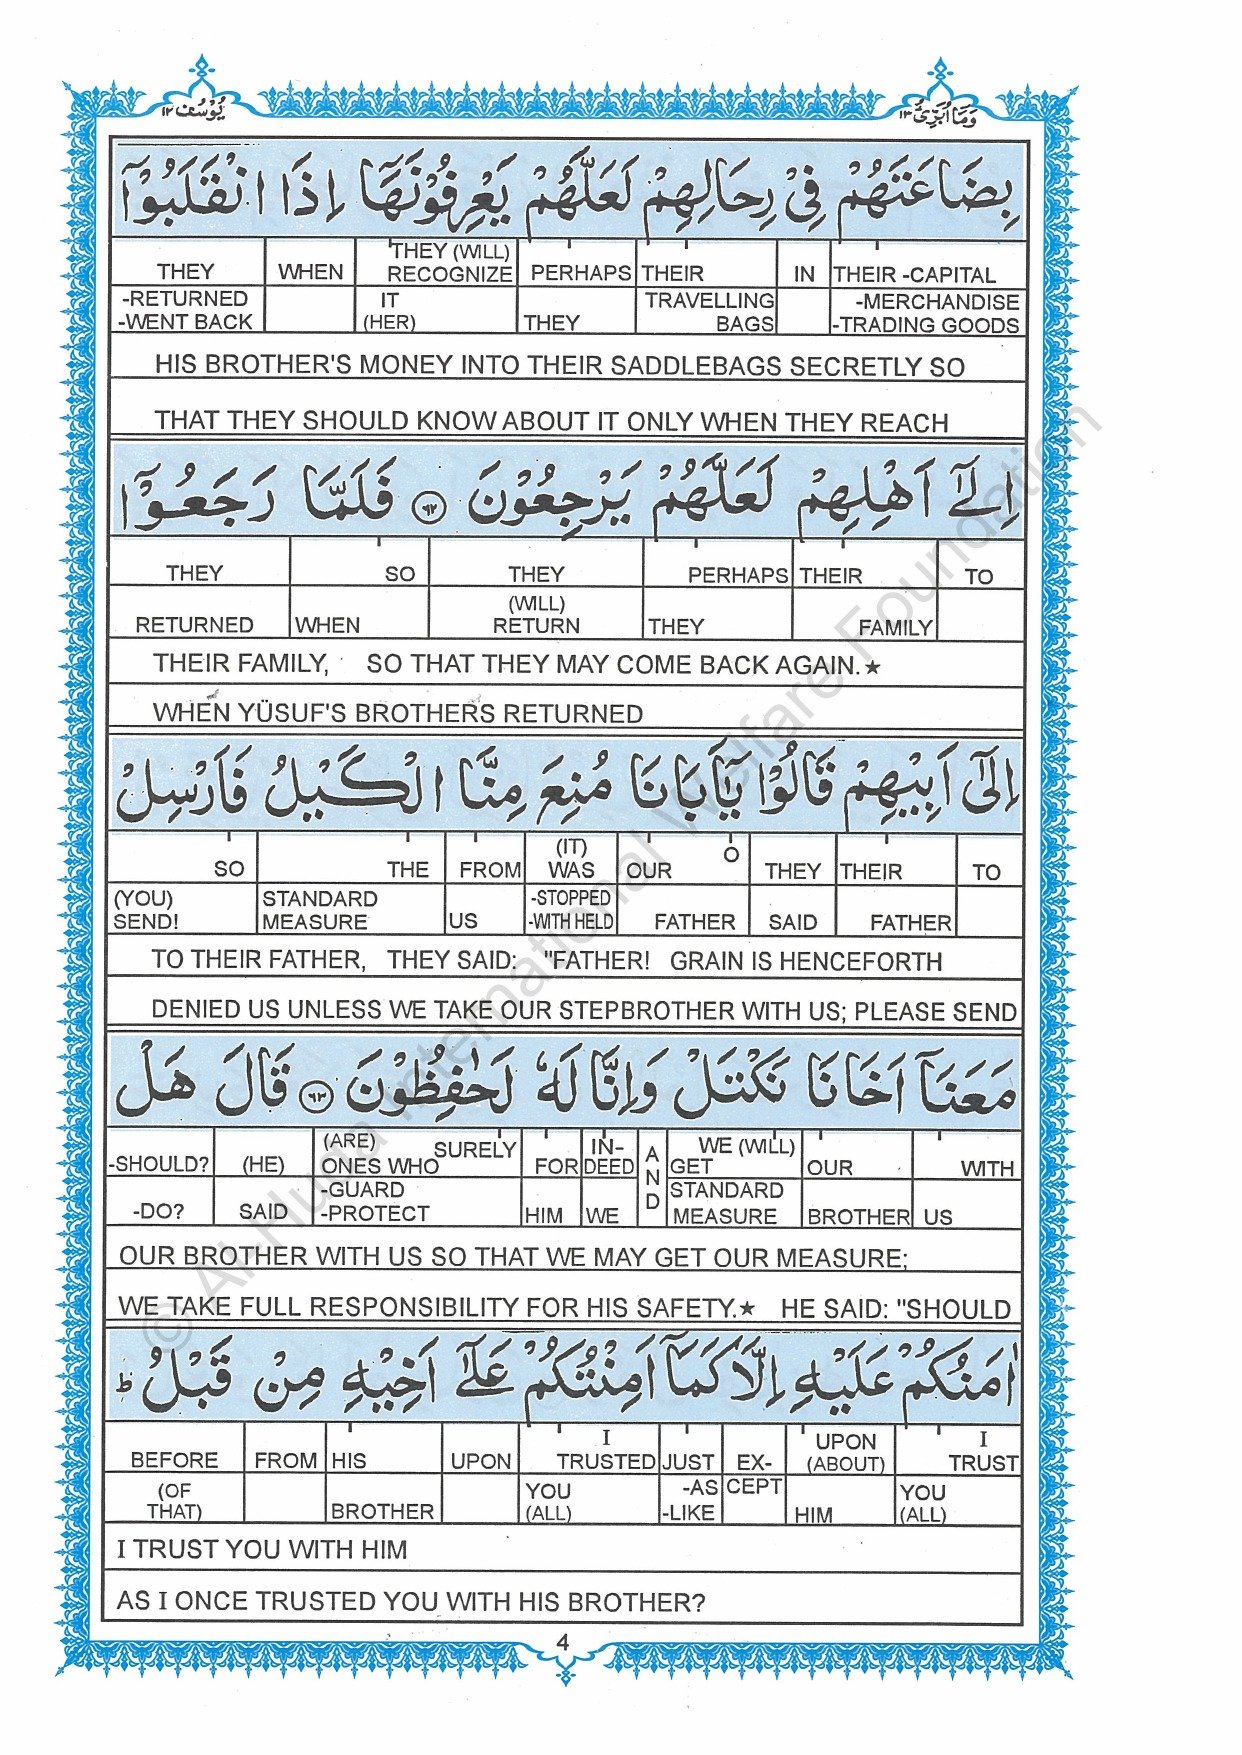 وَمَا اُبَرِّئُ ١٣ يُوْسُف ١٢
بِضَاعَتَهُمْ فِيْ رِحَالِهِمْ لَعَلَّهُمْ يَعْرِفُوْنَهَآ اِذَا انْقَلَبُوْٓا
THEY WHEN THEY (WILL) RECOGNIZE PERHAPS THEIR IN THEIR -CAPITAL
-RETURNED -WENT BACK IT (HER) THEY TRAVELLING BAGS -MERCHANDISE -TRADING GOODS
HIS BROTHER'S MONEY INTO THEIR SADDLEBAGS SECRETLY SO
THAT THEY SHOULD KNOW ABOUT IT ONLY WHEN THEY REACH
اِلٰٓى اَهْلِهِمْ لَعَلَّهُمْ يَرْجِعُوْنَ ٦٢ فَلَمَّا رَجَعُوْٓا
THEY SO THEY PERHAPS THEIR TO
RETURNED WHEN (WILL) RETURN THEY FAMILY
THEIR FAMILY, SO THAT THEY MAY COME BACK AGAIN.★
WHEN YÜSUF'S BROTHERS RETURNED
اِلٰٓى اَبِيْهِمْ قَالُوْا يٰٓاَبَانَا مُنِعَ مِنَّا الْكَيْلُ فَاَرْسِلْ
SO THE FROM (IT) WAS OUR O THEY THEIR TO
(YOU) SEND! STANDARD MEASURE US -STOPPED -WITH HELD FATHER SAID FATHER
TO THEIR FATHER, THEY SAID: "FATHER! GRAIN IS HENCEFORTH
DENIED US UNLESS WE TAKE OUR STEPBROTHER WITH US; PLEASE SEND
مَعَنَآ اَخَانَا نَكْتَلْ وَاِنَّا لَهٗ لَحٰفِظُوْنَ ٦٣ قَالَ هَلْ
-SHOULD? (HE) (ARE) ONES WHO SURELY FOR IN-DEED AND WE (WILL) GET OUR WITH
-DO? SAID -GUARD -PROTECT HIM WE STANDARD MEASURE BROTHER US
OUR BROTHER WITH US SO THAT WE MAY GET OUR MEASURE;
WE TAKE FULL RESPONSIBILITY FOR HIS SAFETY.★ HE SAID: "SHOULD
اٰمَنُكُمْ عَلَيْهِ اِلَّا كَمَآ اَمِنْتُكُمْ عَلٰٓى اَخِيْهِ مِنْ قَبْلُ ؕ
BEFORE FROM HIS UPON I TRUSTED JUST EX- UPON (ABOUT) I TRUST
(OF THAT) BROTHER YOU (ALL) -AS -LIKE CEPT HIM YOU (ALL)
I TRUST YOU WITH HIM
AS I ONCE TRUSTED YOU WITH HIS BROTHER?
4
© Al-Huda International Welfare Foundation